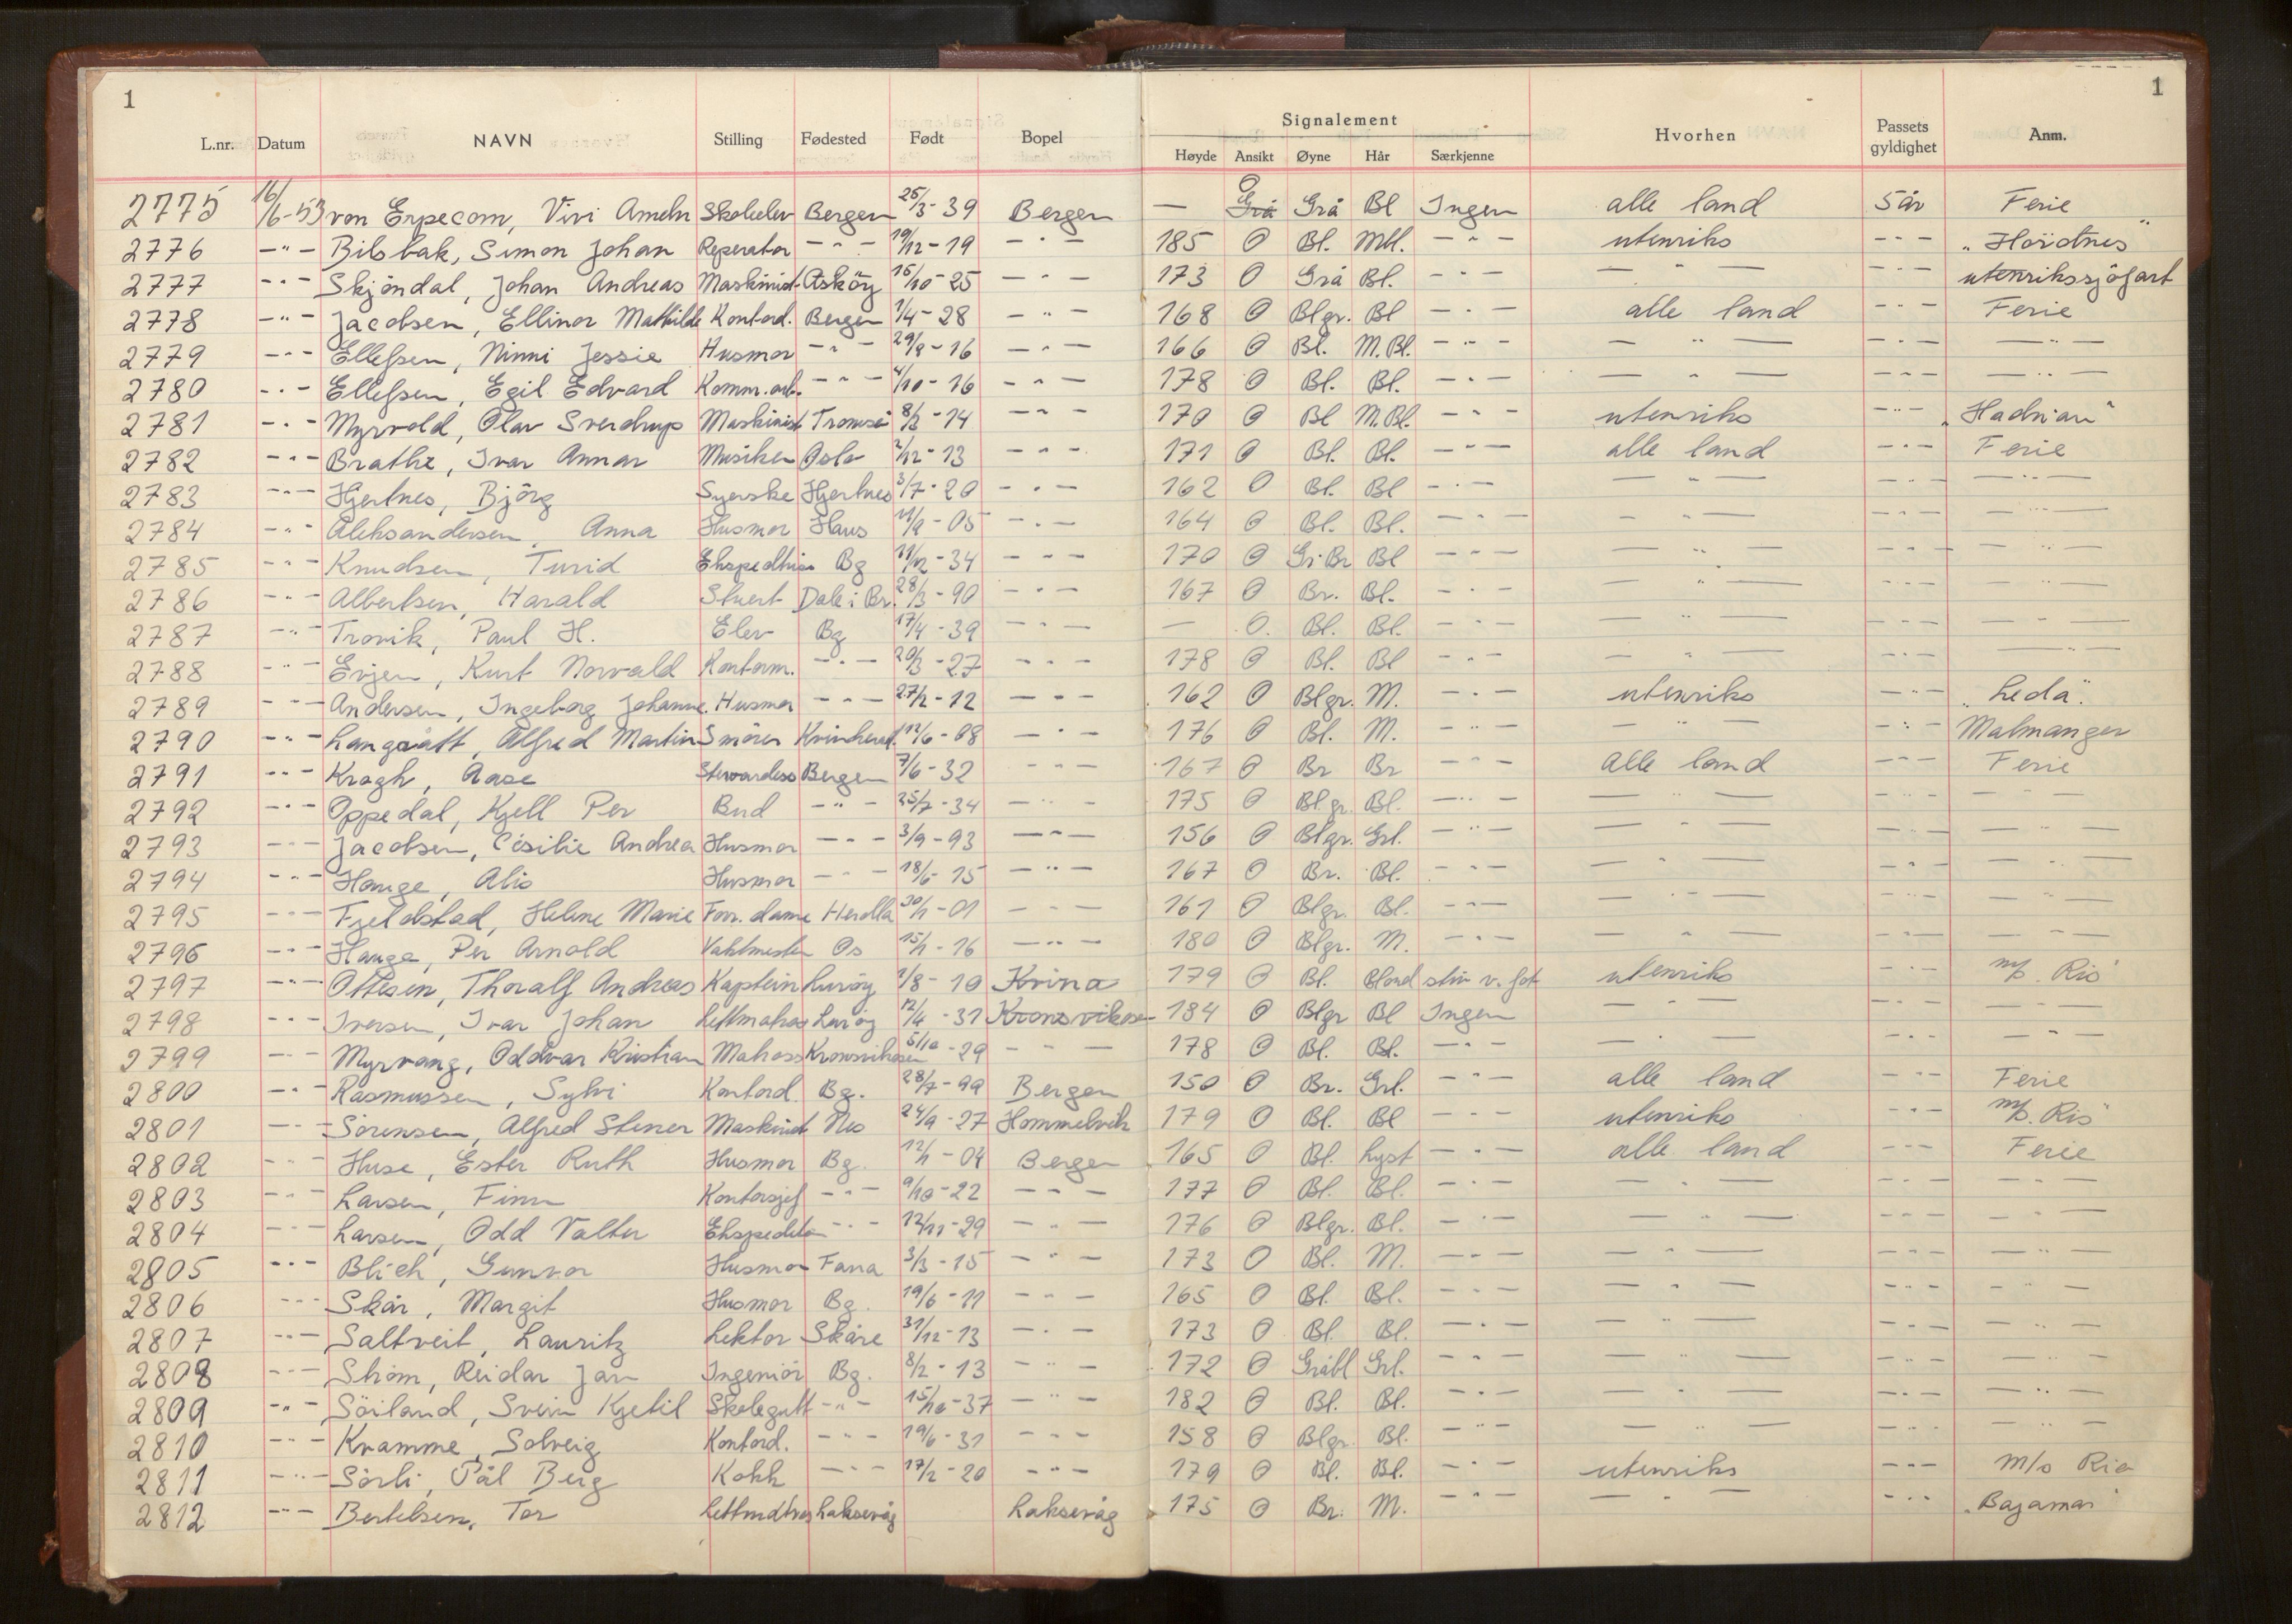 1 1
Signalement
L.nr. Datum NAVN Stilling Fødested Født Bopel Høyde Ansikt Øyne Hår Særkjenne Hvorhen Passets gyldighet Anm.
2775 16/6-53 von Erpecom, Vivi Skoleelev Bergen 26/3-39 Bergen — O Grå Grå Bl Ingen alle land 5 år Ferie
2776 -"- Bilsbak, Simon Johan Reperatør -"- 19/12-19 -"- 185 O Bl. Mbl. -"- utenriks -"-
2777 -"- Skjöndal, Johan Andreas Maskinist Asköy 15/10-25 -"- 173 O Grå Bl. -"- -"- -"- utenrikssjöfart
2778 -"- Jacobsen, Ellinor Mathilde Kontord. Bergen 1/4-28 -"- 168 O Blgr. Bl -"- alle land -"- Ferie
2779 -"- Ellefsen, Ninni Jessie Husmor -"- 29/9-16 -"- 166 O Bl. M.Bl. -"- -"- -"- -"-
2780 -"- Ellefsen, Egil Edvard Komm.arb. -"- 4/10-16 -"- 178 O Bl. Bl. -"- -"- -"- -"-
2781 -"- Myrvold, Olav Sverdrup Maskinist Tromsö 8/3-14 -"- 170 O Bl M.Bl. -"- utenriks -"- "Hadrian"
2782 -"- Brathe, Ivar Annar Musiker Oslo 2/12-13 -"- 171 O Bl. Bl. -"- alle land -"- Ferie
2783 -"- Hjertnes, Björg Syerske Hjertnes 3/7-20 -"- 162 O Bl. Bl -"- -"- -"- -"-
2784 -"- Aleksandersen, Anna Husmor Haus 11/9-05 -"- 164 O Bl. Bl. -"- -"- -"- -"-
2785 -"- Knudsen, Turid Bg 11/12-34 -"- 170 O Gr.Br Bl -"- -"- -"- -"-
2786 -"- Albertsen, Harald Stuert Dale i Br. 28/3-90 -"- 167 O Br. Bl. -"- -"- -"- -"-
2787 -"- Trovik, Paul H. Elev Bg 17/4-39 -"- — O. Bl. Bl. -"- -"- -"- -"-
2788 -"- Evjen, Kurt Norvald Kontorm. -"- 20/3-27 -"- 178 O Bl. Bl -"- -"- -"- -"-
2789 -"- Andersen, Ingeborg Johanne Husmor -"- 27/2-12 -"- 162 O Blgr. M. -"- utenriks -"- "Leda".
2790 -"- Langvatt, Alfred Martin Smörer Kvinherad. 12/6-08 -"- 176 O Bl. M. -"- -"- -"- Malmanger
2791 -"- Kragh, Aase Stewardess Bergen 7/6-32 -"- 167 O Br Br -"- Alle land -"- Ferie
2792 -"- Oppedal, Kjell Per Bud -"- 25/7-34 -"- 175 O Bl.gr. Bl. -"- -"- -"- -"-
2793 -"- Jacobsen, Cesilie Andrea Husmor -"- 3/9-93 -"- 156 O Blgr. Grl. -"- -"- -"- -"-
2794 -"- Hauge, Alis Husmor -"- 18/5-15 -"- 167 O Br. Bl. -"- -"- -"- -"-
2795 -"- Fjeldstad, Helene Marie Forr. dame Herdla 30/1-01 -"- 161 O Blgr. Bl. -"- -"- -"- -"-
2796 -"- Hauge, Per Arnold Vaktmester Os 15/1-16 -"- 180 O Blgr. M. -"- -"- -"- -"-
2797 -"- Ottesen, Thoralf Andreas Kaptein Luröy 2/8-10 Kvina 179 O Bl. Blond stiv v. fot utenriks -"- m/s. Rio"
2798 -"- Iversen, Ivar Johan Lettmatros Luröy 12/4-31 184 O Blgr Bl Ingen -"- -"- -"-
2799 -"- Myrvang, Oddvar Kristian Matross 5/10-29 -"- 178 O Bl. Bl. -"- -"- -"- -"-
2800 -"- Rasmussen, Sylvi Kontord. Bg. 28/7-99 Bergen 150 O Br. Grl. -"- alle land -"- Ferie
2801 -"- Sörensen, Alfred Steiner Maskinist Nes 24/9-27 Hommelvik 179 O Bl. Bl -"- utenriks -"- m/s. Rio"
2802 -"- Huse, Ester Ruth Husmor Bg. 12/1-04 Bergen 165 O Bl. Lyst -"- alle land -"- Ferie
2803 -"- Larsen, Finn Kontorsjef -"- 9/10-22 -"- 177 O Bl. Bl. -"- -"- -"- -"-
2804 -"- Larsen, Odd Valter Ekspeditör -"- 12/11-29 -"- 176 O Blgr. Bl. -"- -"- -"- -"-
2805 -"- Blich, Gunvor Husmor Fana 3/3-15 -"- 173 O Bl. M. -"- -"- -"- -"-
2806 -"- Skår, Margit Husmor Bg. 19/6-11 -"- 165 O Bl. Bl. -"- -"- -"- -"-
2807 -"- Saltveit, Lauritz Lektor Skåre 31/12-13 -"- 173 O Bl. Bl. -"- -"- -"- -"-
2808 -"- Ström, Reidar Jan Ingeniör Bg. 8/2-13 -"- 172 O Gråbl Grl. -"- -"- -"- -"-
2809 -"- Söiland, Svein Kjetil Skolegutt -"- 15/10-37 -"- 182 O Bl. Bl. -"- -"- -"- -"-
2810 -"- Kvamme, Solveig Kontord. -"- 19/6-31 -"- 158 O Blgr. Bl. -"- -"- -"- -"-
2811 -"- Sörli, Pål Berg Kokk -"- 17/2-20 -"- 179 O Bl. Bl. -"- utenriks -"- M/s Rio
2812 -"- Bertelsen, Tor Lettmatros Laksevåg Laksevåg 175 O Br. M. -"- -"- -"- "Bajamar"